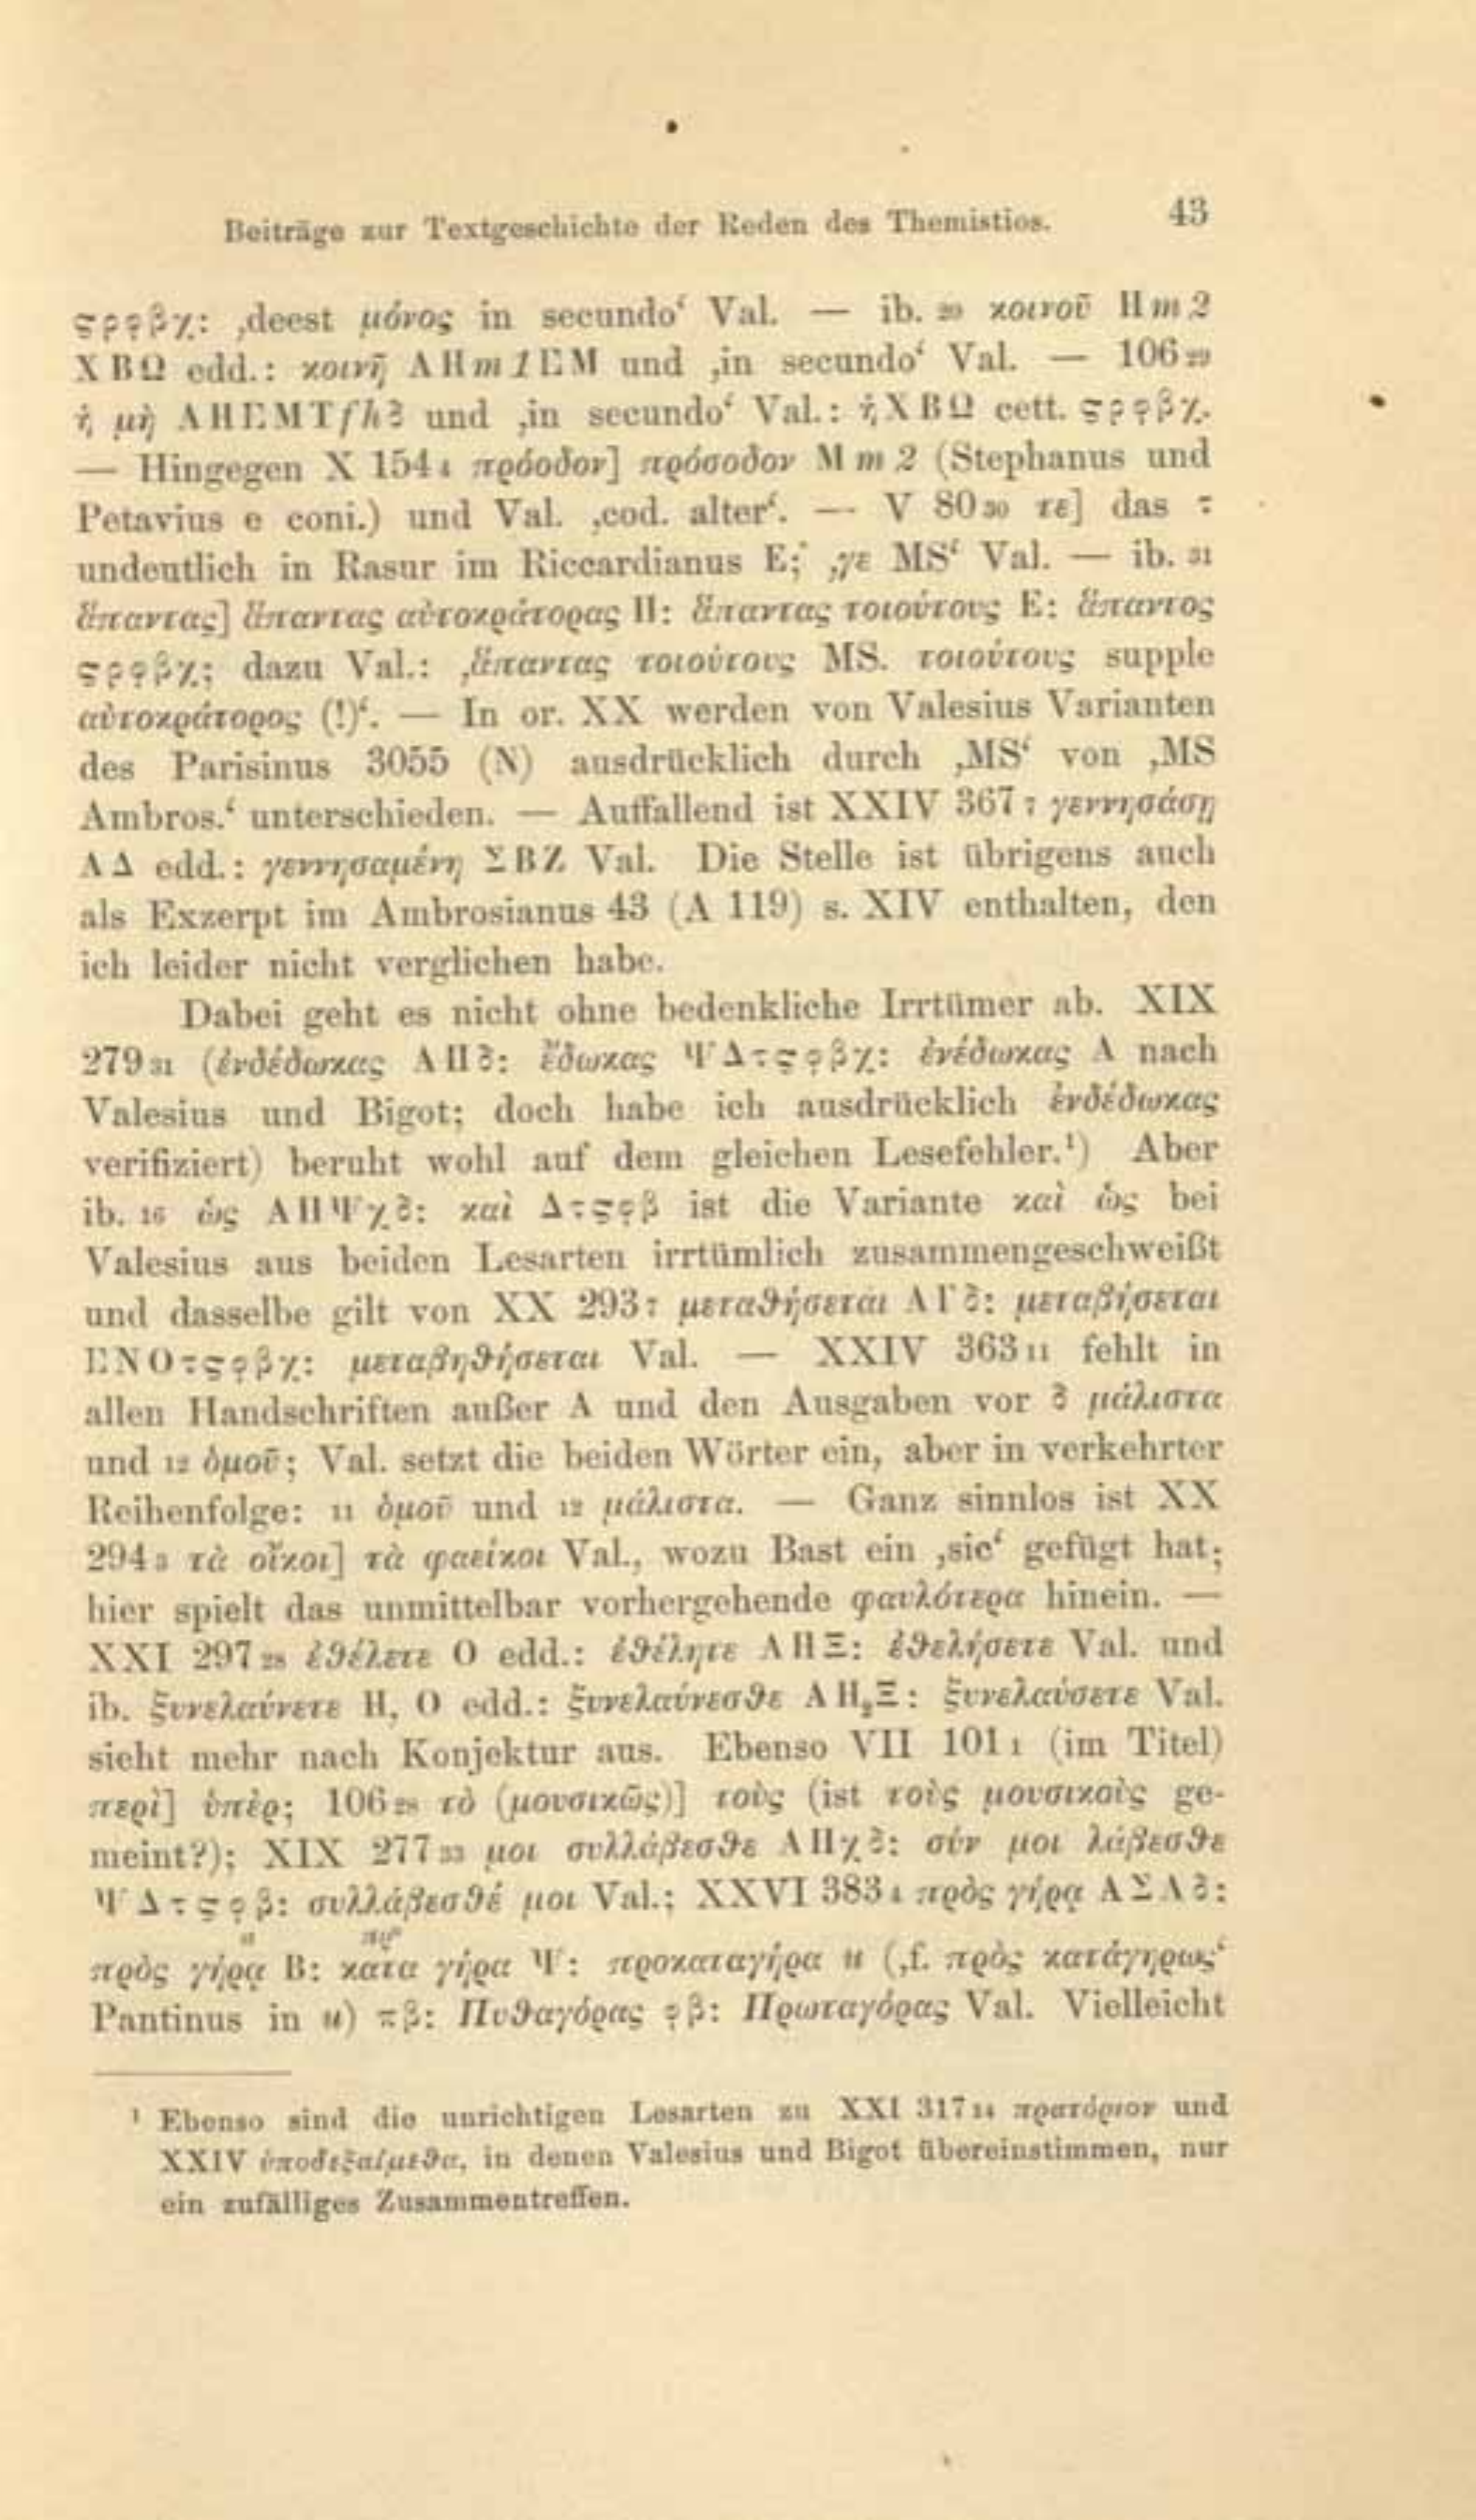 Beiträge zur Textgeschichte der Reden des Themistios. 43
ςρϙβχ: ‚deest μόνος in secundo‘ Val. — ib. 20 κοινοῦ Π m 2
Χ Β Ω edd.: κοινῇ Α Π m 1 Ε Μ und ‚in secundo‘ Val. — 106 29
ἢ μὴ Α Π Ε Μ Τ f h δ und ‚in secundo‘ Val.: ἢ Χ Β Ω cett. ςρϙβχ.
— Hingegen X 154 4 πρόοδον] πρόσοδον M m 2 (Stephanus und
Petavius e coni.) und Val. ‚cod. alter‘. — V 80 30 τε] das τ
undeutlich in Rasur im Riccardianus E; ‚γε MS‘ Val. — ib. 31
ἅπαντας] ἅπαντας αὐτοκράτορας Π: ἅπαντας τοιούτους Ε: ἅπαντος
ςρϙβχ; dazu Val.: ‚ἅπαντας τοιούτους MS. τοιούτους supple
αὐτοκράτορος (!)‘. — In or. XX werden von Valesius Varianten
des Parisinus 3055 (N) ausdrücklich durch ‚MS‘ von ‚MS
Ambros.‘ unterschieden. — Auffallend ist XXIV 367 7 γεννησάσῃ
Α Δ edd.: γεννησαμένῃ Σ Β Ζ Val. Die Stelle ist übrigens auch
als Exzerpt im Ambrosianus 43 (A 119) s. XIV enthalten, den
ich leider nicht verglichen habe.
Dabei geht es nicht ohne bedenkliche Irrtümer ab. XIX
279 31 (ἐνδέδωκας Α Π δ: ἔδωκας Ψ Δ τςϙβχ: ἐνέδωκας Α nach
Valesius und Bigot; doch habe ich ausdrücklich ἐνδέδωκας
verifiziert) beruht wohl auf dem gleichen Lesefehler.¹) Aber
ib. 16 ὡς Α Π Ψ χ δ: καὶ Δ τςϙβ ist die Variante καὶ ὡς bei
Valesius aus beiden Lesarten irrtümlich zusammengeschweißt
und dasselbe gilt von XX 293 7 μεταθήσεται Α Γ δ: μεταβήσεται
Ε Ν Ο τςϙβχ: μεταβηθήσεται Val. — XXIV 363 11 fehlt in
allen Handschriften außer A und den Ausgaben vor δ μάλιστα
und 12 ὁμοῦ; Val. setzt die beiden Wörter ein, aber in verkehrter
Reihenfolge: 11 ὁμοῦ und 12 μάλιστα. — Ganz sinnlos ist XX
294 3 τὰ οἴκοι] τὰ φαείκοι Val., wozu Bast ein ‚sic‘ gefügt hat;
hier spielt das unmittelbar vorhergehende φαυλότερα hinein. —
XXI 297 28 ἐθέλετε Ο edd.: ἐθέλητε Α Π Ξ: ἐθελήσετε Val. und
ib. ξυνελαύνετε Π, Ο edd.: ξυνελαύνεσθε Α Π₂ Ξ: ξυνελαύσετε Val.
sieht mehr nach Konjektur aus. Ebenso VII 101 1 (im Titel)
περὶ] ὑπὲρ; 106 28 τὸ (μουσικῶς)] τοὺς (ist τοὺς μουσικοὺς ge-
meint?); XIX 277 33 μοι συλλάβεσθε Α Π χ δ: σύν μοι λάβεσθε
Ψ Δ τςϙβ: συλλάβεσθέ μοι Val.; XXVI 383 4 πρὸς γήρᾳ Α Σ Λ δ:
πρὸς γήρᾳ Β: κατα γήρα Ψ: προκαταγήρα u (‚f. πρὸς κατάγηρως‘
Pantinus in u) πβ: Πυθαγόρας ϙβ: Πρωταγόρας Val. Vielleicht
¹ Ebenso sind die unrichtigen Lesarten zu XXI 317 14 πρατόριον und
XXIV ὑποδεξαίμεθα, in denen Valesius und Bigot übereinstimmen, nur
ein zufälliges Zusammentreffen.